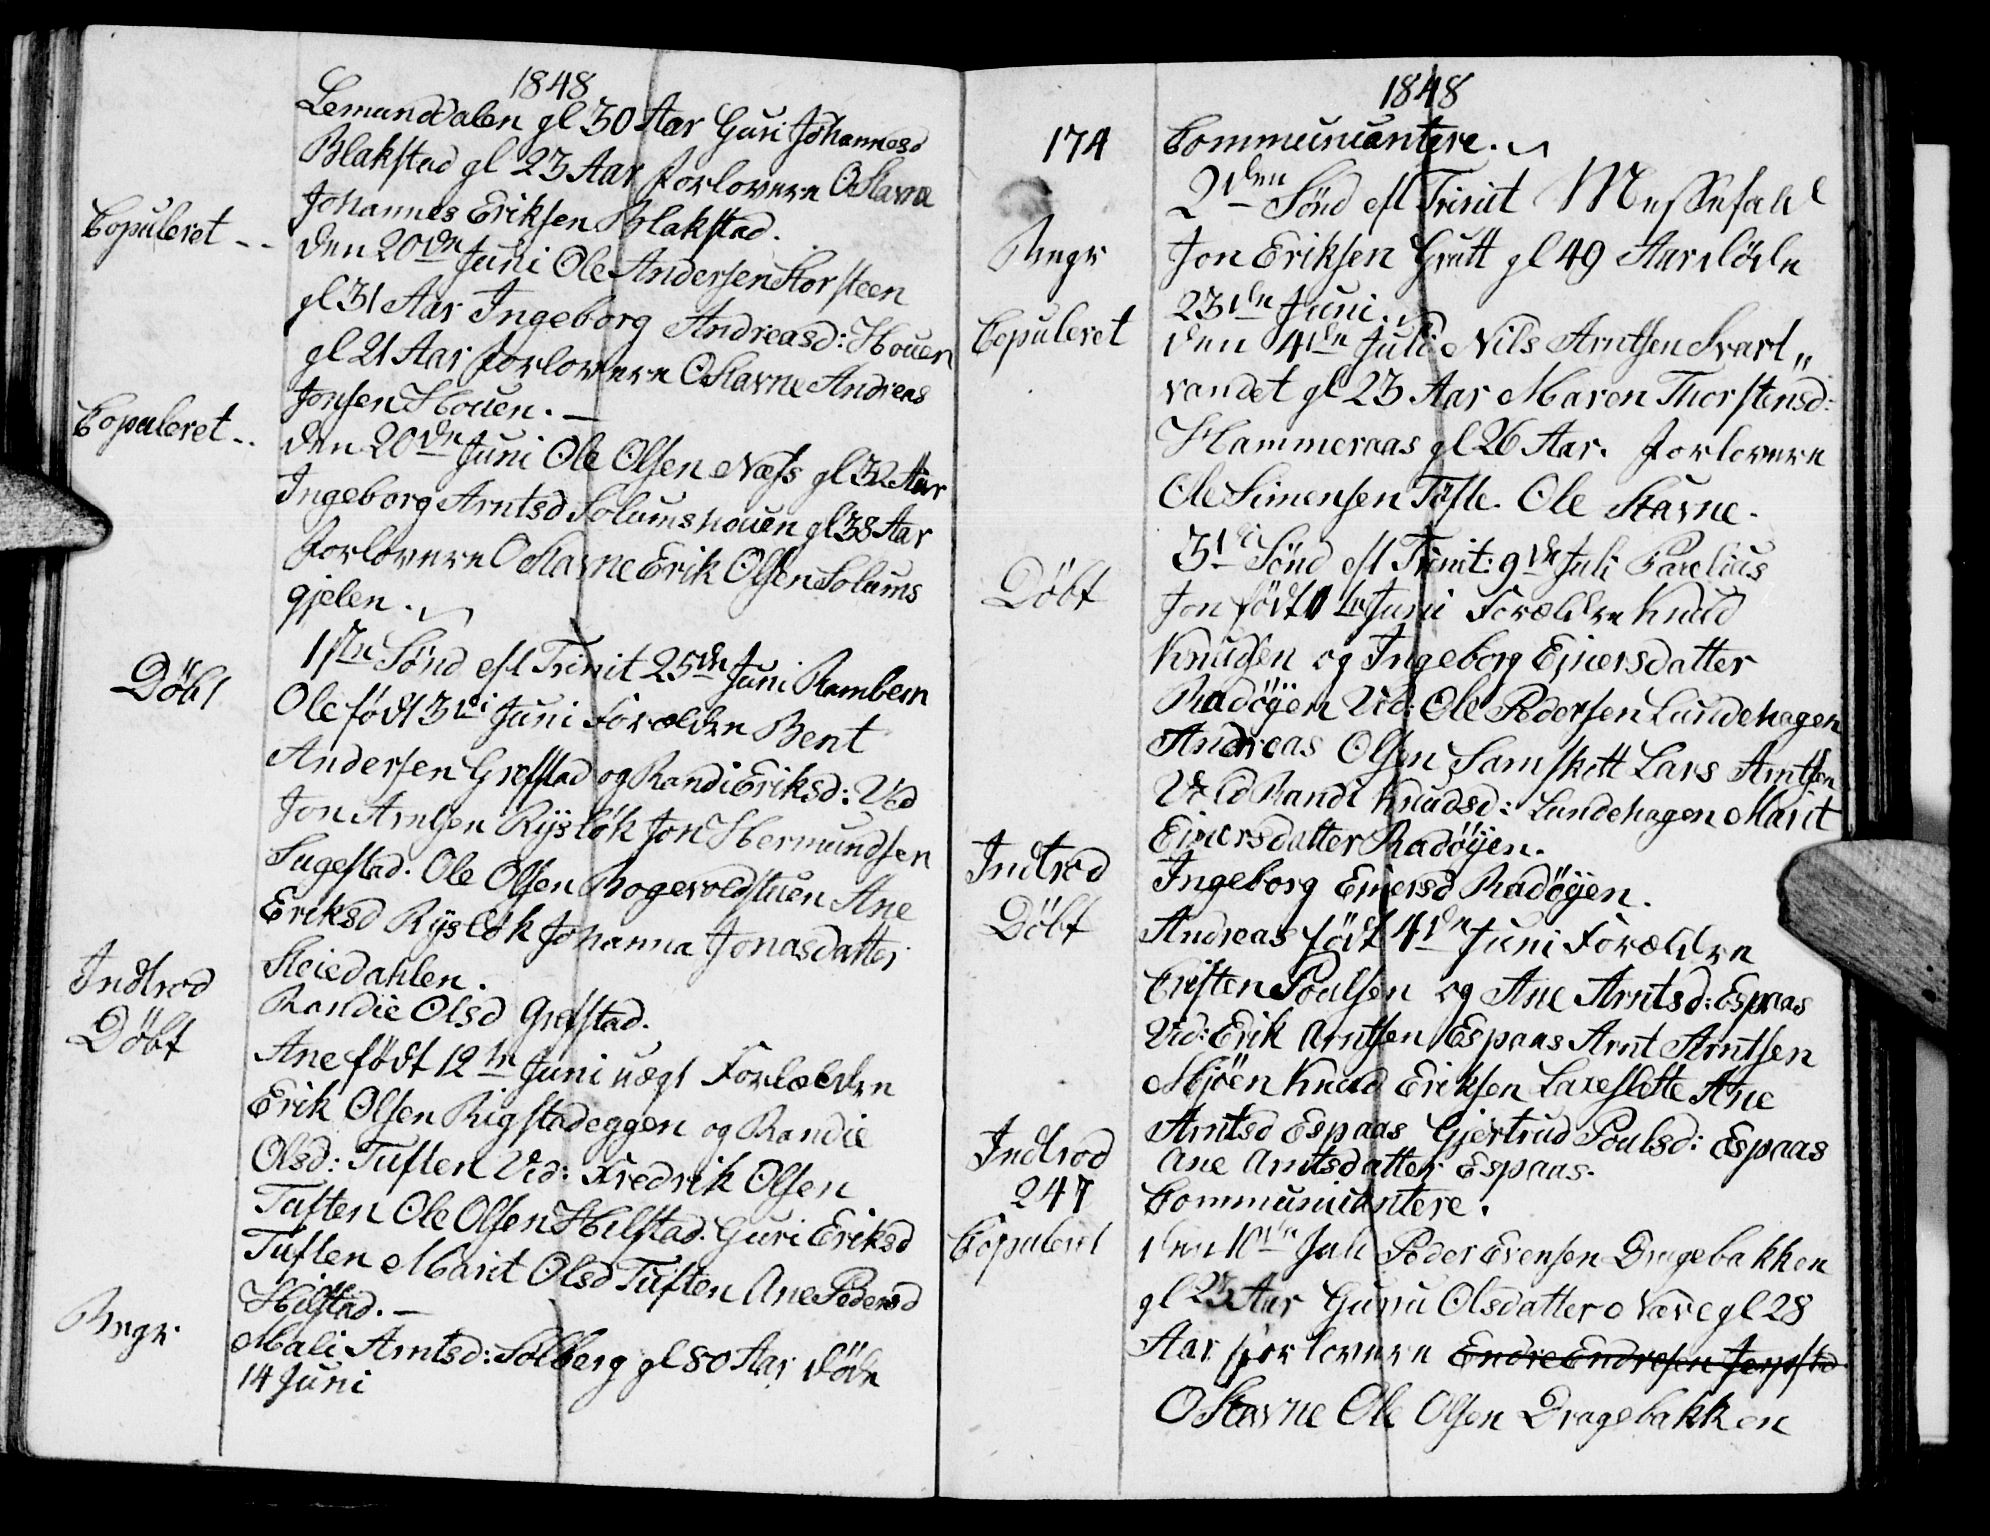 1848
Lemundalen gl 30 Aar Guri Johannesd
Blakstad gl 23 Aar forlovere O Stavne
Johannes Eriksen Blakstad.
Copuleret -- den 20de Juni Ole Andersen Storsteen
gl 31 Aar Ingeborg Andreasd: Houen
gl 21 Aar forlovere O Stavne Andreas
Jonsen Houen. —
Copuleret -- den 20de Juni Ole Olsen Næss gl 32 Aar
Ingeborg Arntsd Solumshouen gl 38 Aar
forlovere O Stavne Erik Olsen Solums
gjelen.
Döbt 1ste Sönd eft Trinit 25de Juni
Ole födt 3die Juni Forældre Bent
Andersen Grefstad og Randi Eriksd: Vid
Jon Arntsen Rÿslök Jon Hermundsen
Ole Olsen Bogevoldstuen Ane
Eriksd Rÿslök Johanna Jonasdatter
Sleiedahlen.
Indtrod Randie Olsd Grefstad.
Döbt Ane födt 12te Juni uægt Forældre
Erik Olsen Rigstadeggen og Randie
Olsd: Tuften Vid: Fredrik Olsen
Tuften Ole Olsen Hilstad. Guri Eriksd
Tuften Marit Olsd Tuften Ane Pedersd
Hilstad. —
Begr. Mali Arntsd: Solberg gl 80 Aar döde
14 Juni
1848
174 Communicantere.
2den Sönd eft Trinit Messefald
Begr Jon Eriksen Grutt gl 49 Aar döde
23de Juni.
Copuleret den 4de Juli Nils Arntsen Svart„
vandet gl 23 Aar Maren Thorstensd:
Hammeraas gl 26 Aar. forlovere
Ole Simensen Töfte. Ole Stavne.
3die Sönd eft Trinit: 9de Juli
Döbt Jon födt Juni Forældre Knud
Knudsen og Ingeborg Einersdatter
Radöÿen Vid: Ole Pedersen Lundehagen
Andreas Olsen Samskott Lars Arntsen
Vold Randi Knudsd: Lundehagen Marit
Einersdatter Radöÿen.
Indtrod Ingeborg Einersd Radöÿen.
Döbt Andreas födt 4de Juni Forældre
Cristen Poulsen og Ane Arntsd: Espaas
Vid: Erik Arntsen Espaas Arnt Arntsen
Mjöen Knud Eriksen Laxeslette Ane
Arntsd Espaas Gjertrud Poulsd: Espaas
Indtrod Ane Arntsdatter Espaas.
247 Communicantere.
Copuleret den 10de Juli Peder Evensen Dragebakken
gl 23 Aar Guru Olsdatter Nave gl 28
Aar forlovere Endre Endresen
O Stavne Ole Olsen Dragebakken